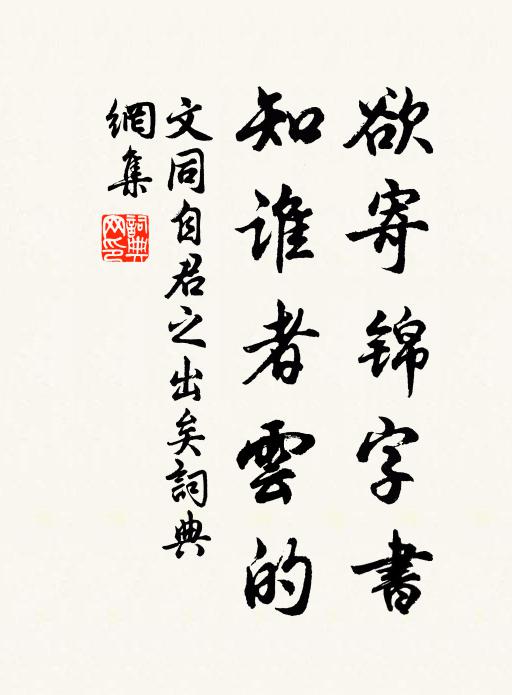 欲寄锦字書
知谁者雲的
文同自君之出矣詞典
網集
詞典网印